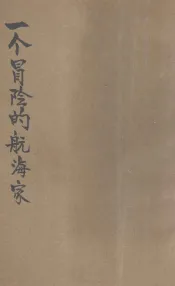 一个冒险的航海家